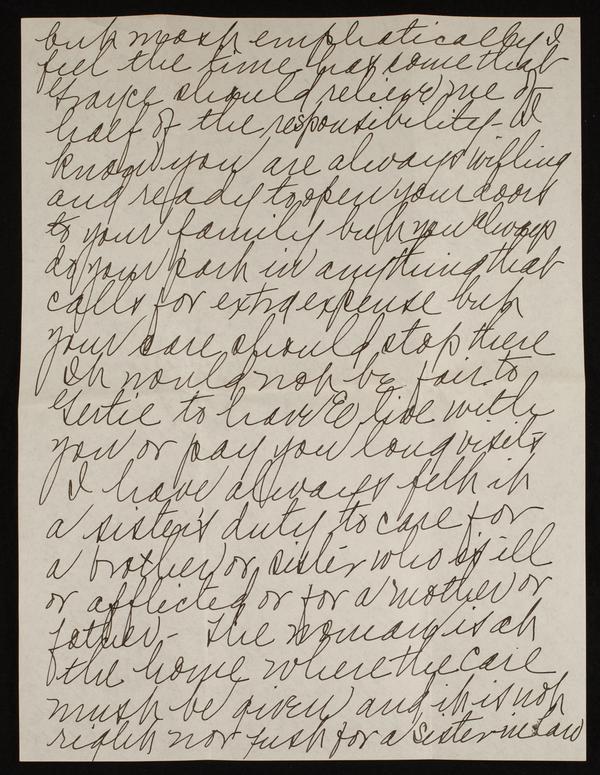 but most emphatically I
feel the time has come that
Grayce should relieve me of
half of the responsibility - I
know you are always willing
and ready to open your doors
to your family but you always
do your part in anything that
calls for extra expense but
your care should stop there
It would not be fair to
Gertie to have Ed live with
you or pay you long visits
I have always felt it
a sister's duty to care for
a brother or sister who is ill
or afflicted or for a mother or
father - The woman is at
the home where the care
must be given and it is not
right nor just for a sister in law